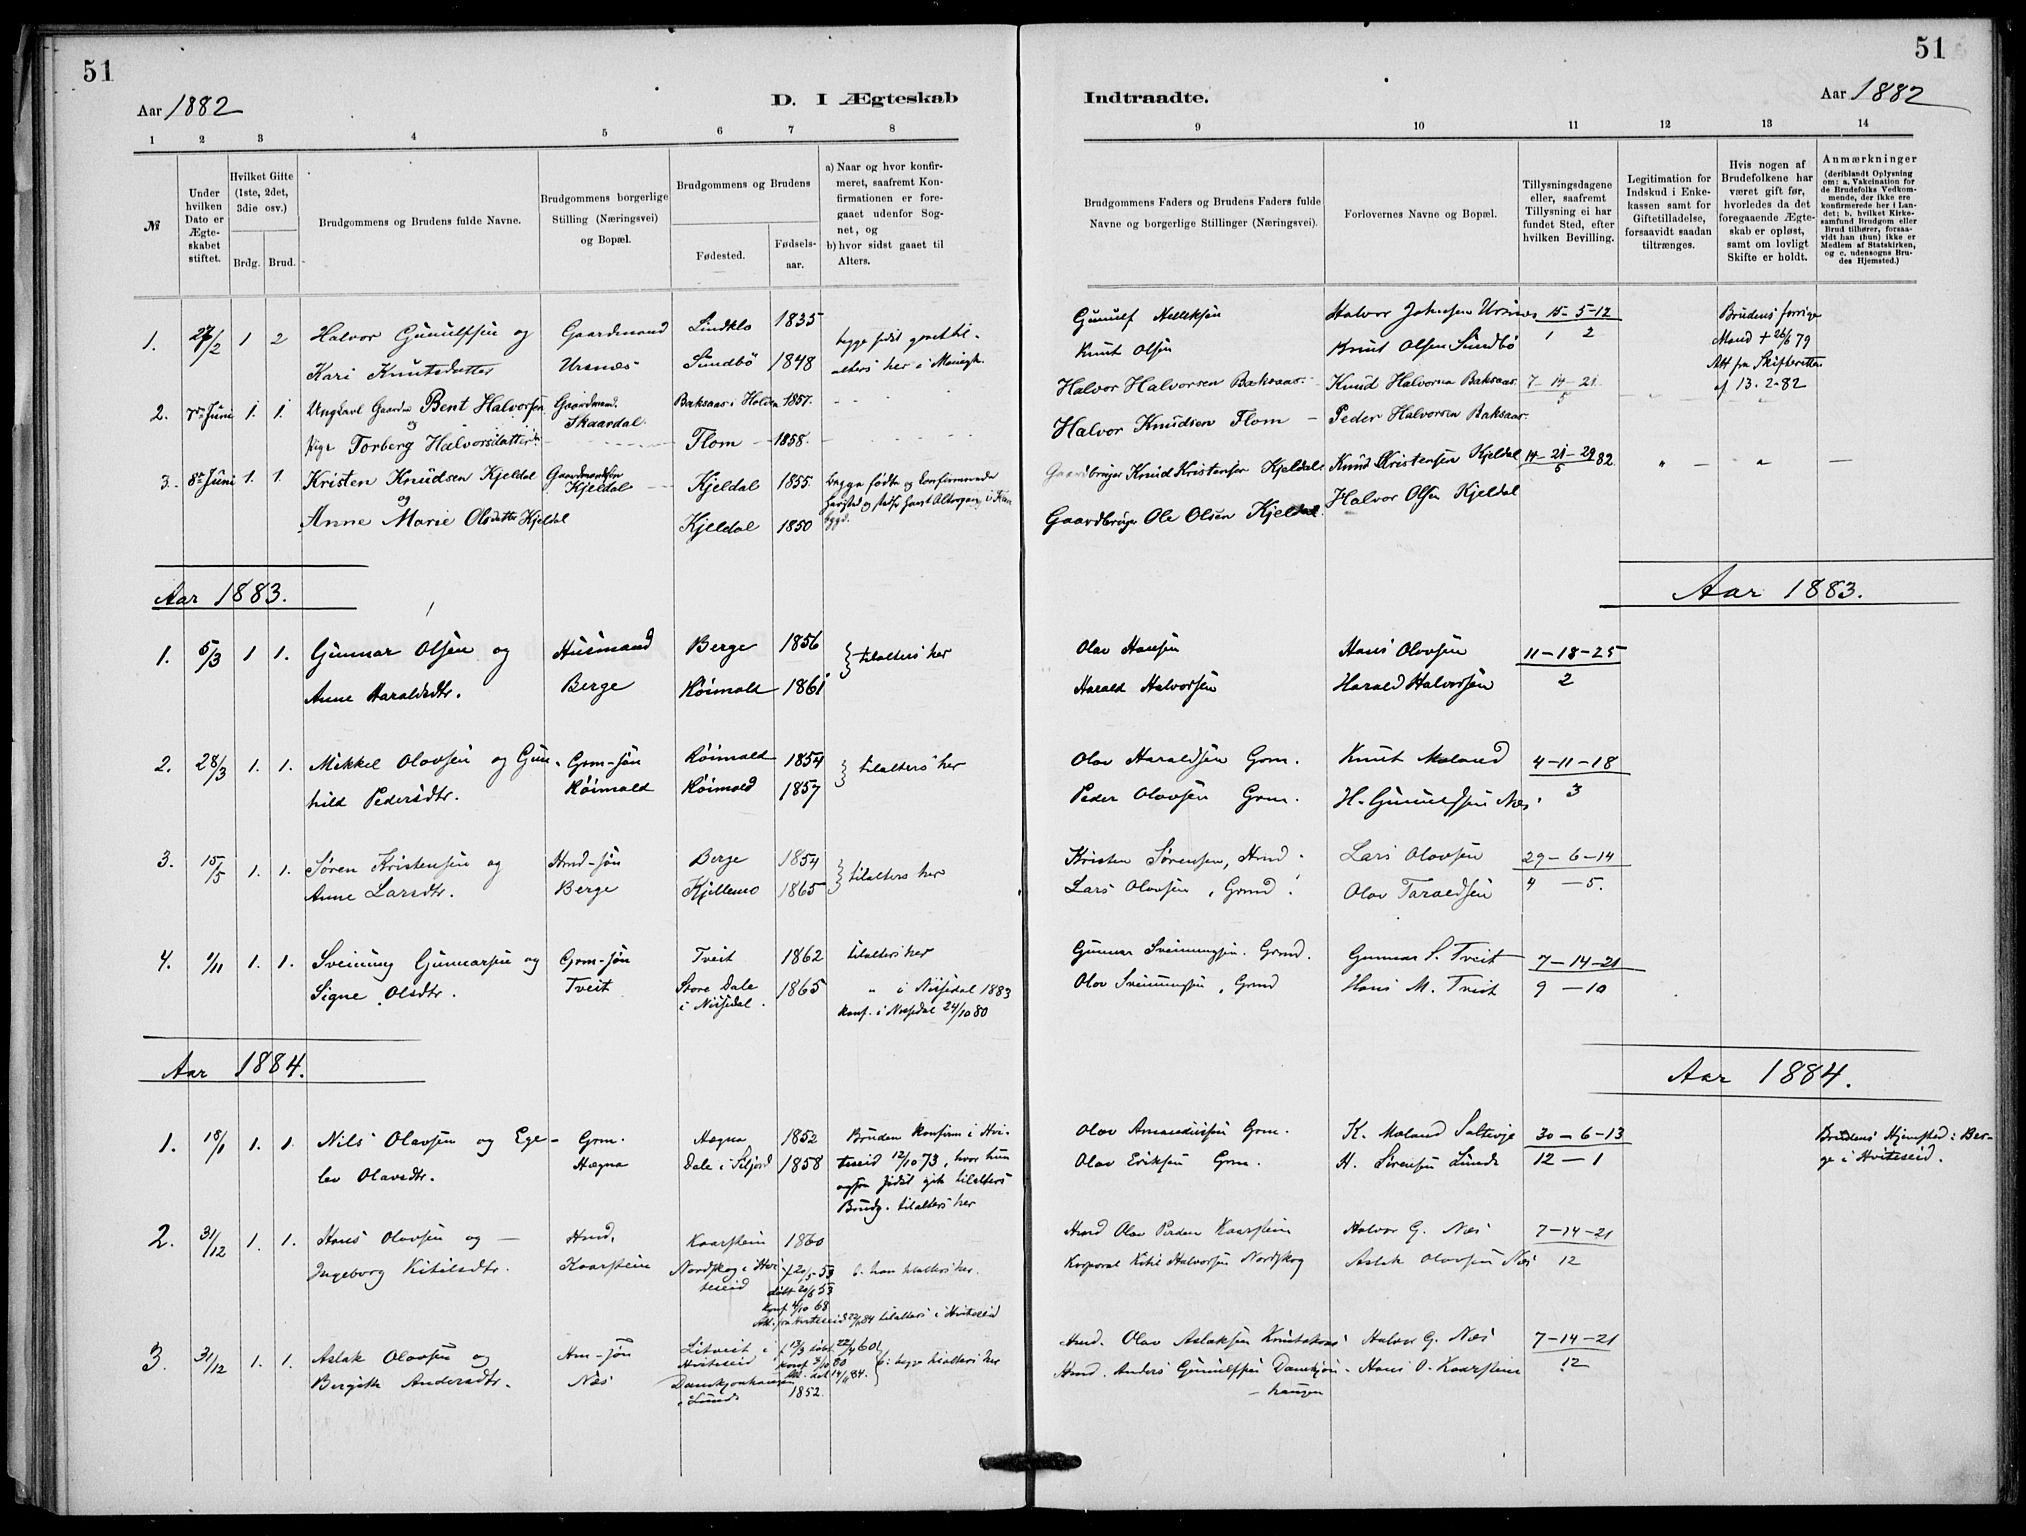 51
51
Aar 1882
D. I Ægteskab
Indtraadte.
Aar 1882
1 2 3 4 5 6 7 8
9 10 11 12 13 14
№
Under hvilken Dato er Ægteskabet stiftet.
Hvilket Gifte (1ste, 2det, 3die osv.)
Brdg. Brud.
Brudgommens og Brudens fulde Navne.
Brudgommens borgerlige Stilling (Næringsvei) og Bopæl.
Brudgommens og Brudens
Fødested.
Fødsels-aar.
a) Naar og hvor konfir-
meret, saafremt Kon-
firmationen er fore-
gaaet udenfor Sog-
net, og
b) hvor sidst gaaet til
Alters.
Brudgommens Faders og Brudens Faders fulde
Navne og borgerlige Stillinger (Næringsvei).
Forlovernes Navne og Bopæl.
Tillysningsdagene
eller, saafremt
Tillysning ei har
fundet Sted, efter
hvilken Bevilling.
Legitimation for
Indskud i Enke-
kassen samt for
Giftetilladelse,
forsaavidt saadan
tiltrænges.
Hvis nogen af
Brudefolkene har
været gift før,
hvorledes da det
foregaaende Ægte-
skab er opløst,
samt om lovligt
Skifte er holdt.
Anmærkninger
(deriblandt Oplysning
om: a. Vakcination for
de Brudefolks Vedkom-
mende, der ikke ere
konfirmerede her i Lan-
det; b. hvilket Kirke-
samfund Brudgom eller
Brud tilhører, forsaa-
vidt han (hun) ikke er
Medlem af Statskirken,
og c. udensogns Bru-
des Hjemsted.)
1. 27/2 1 2 Halvor Gunulfsen og Gaardmand Lindklo 1835
Kari Knutsdatter Ursnæs Sundbö 1848
Gunulf Nelleksen Halvor Johnsen Ursnæs 15-5-12
Knut Olsen Knut Olsen Sundbö 1 2
Brudens forrige
Mand + 26/6 79
Att fra Skifteretten
af 13-2-82
2. 7de Juni 1. 1. Ungkarl Bent Halvorsen Gaardmand. Baksaas i Holden 1857.
og Skaardal.
Pige Torberg Halvorsdatter Flom 1858.
Halvor Halvorsen Baksaas. Knud Halvorsen Baksaas. 7-14-21
Halvor Knudsen Flom - Peder Halvorsen Baksaas. 5
3. 8de Juni 1. 1. Kristen Knudsen Kjeldal Kjeldal Kjeldal 1855.
og
Anne Marie Olsdatter Kjeldal Kjeldal 1850
Knud Kristensen Kjeldal Knud Kristensen Kjeldal 14-21-29 82.
Gaardbruger Ole Olsen Kjeldal. Halvor Olsen Kjeldal 5
Aar 1883.
Aar 1883.
1. 5/3 1 1. Gunnar Olsen og Husmand Berge 1856 tilalters her
Anne Haraldsdtr. Berge Röimald 1861
Olav Hansen Hans Olovsen 11-18-25
Harald Halvorsen Harald Halvorsen 2
2. 28/3 1. 1. Mikkel Olovsen og Gun- Grm-sön Röimald 1854 tilalters her
hild Pedersdtr. Röimald Röimald 1857
Olav Haraldsen Grm. Knut Moland 4-11-18
Peder Olovsen Grm. H. Gunulfsen Næs 3
3. 15/5 1. 1. Søren Kristensen og Hmd-sön Berge 1854 tilalters her
Anne Larsdtr. Berge Kjellemo 1865
Kristen Sørensen, Hmd. Lars Olovsen 29-6-14
Lars Olovsen, Grmd. Olav Taraldsen 4 - 5.
4. 1/11 1. 1. Sveinung Gunnarsen og Grm-sön Tveit 1862 tilalters her
Signe Olsdtr. Tveit Store Dale 1865 " i Nissedal 1883
i Nissedal. konf. i Nissedal 24/10 80
Gunnar Sveinungsen. Grmd. Gunnar S. Tveit 7-14-21
Olov Sveinungsen, Grmd Hans M. Tveit 9 - 10
Aar 1884.
Aar 1884.
1. 18/1 1. 1. Nils Olavsen og Ege- Grm. Hægna 1852 Bruden konfirm i Hvi-
lev Olavsdtr. Hægna Dale i Siljord 1858 teseid 12/10 73, hvor hun
ogsaa sidst gik tilalters
Brudg. tilalters her
Olav Amundsen Grm. K. Moland 30-6-13
Olav Eriksen Grm. H. Sörensen Lunde 12 - 1
Brudens Hjemsted: Ber-
ge i Hviteseid.
2. 31/12 1. 1. Hans Olovsen og - Hmd. Kaarstein 1860
Ingeborg Kitilsdtr. Kaarstein Nordskog i Hvi-
teseid döbt 20/6 53
konf 4/10 68
b. han tilalters her.
tilalters i Hviteseid
Hmd Olav Kaarstein Halvor G. Næs 7-14-21
Korporal Kitil Halvorsen Nordskog Aslak Olovsen Næs 12
3. 31/12 1. 1. Aslak Olovsen og Hm-sön Litveit i
Bergith Andersdtr. Næs Hviteseid
i Lunde 1852.
b: begge tilalters her
Hmd. Olav Aslaksen Halvor G. Næs 7-14-21
Hmd. Anders Gunulfsen Hans O. Kaarstein 12
haugen